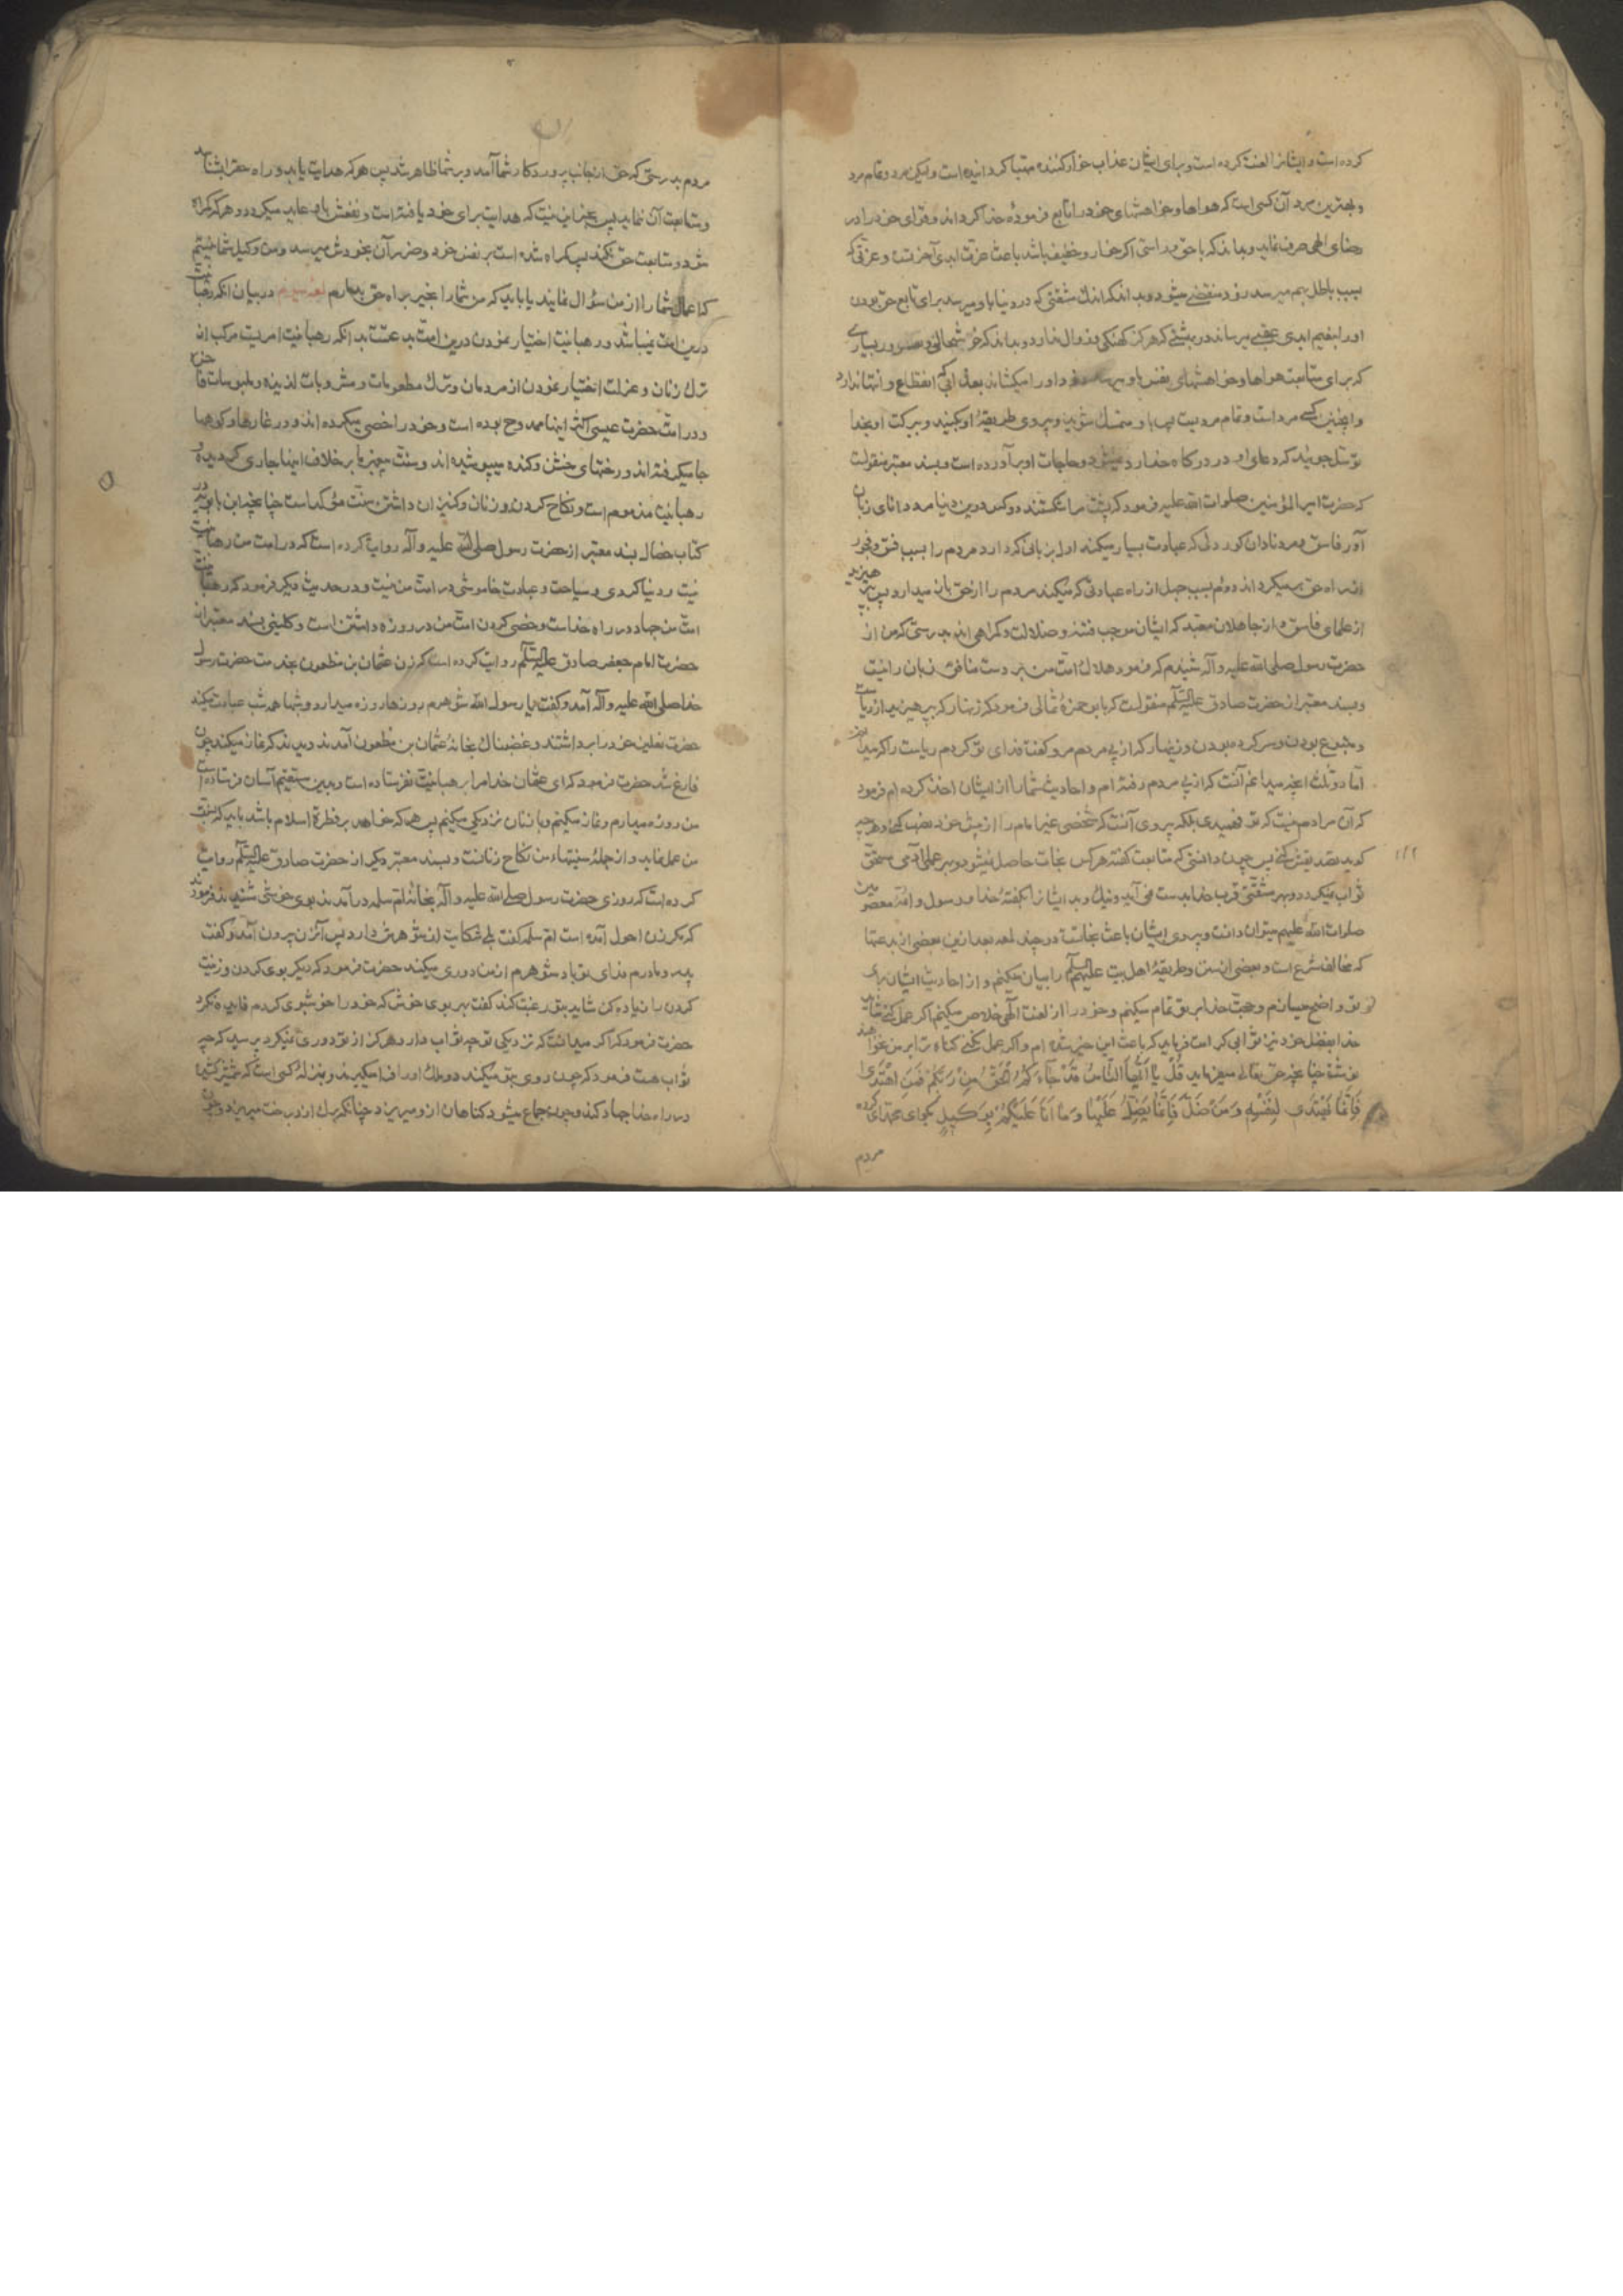 کرده است و ایشانرا لعنت کرده است و برای ایشان عذاب خوارکننده مهیا کردانیده است ولیکن مرد و تمام مرد
و بهترین مرد آن کسی است که هواها و خواهشهای خود را تابع فرمودهٔ خدا کرداند و قوای خود را در
رضای الهی صرف نماید و بداند که با حق و راستی اکر خار و خفیف باشد باعث عزت ابدی آخرتست و عزتی که
بسبب باطل بهم میرسد زود منقضی میشود و بداند که اندک مشقتی که در دنیا باو میرسد برای تابع حق بودن
او را بنعیم ابدی عقبی میرساند در بهشتی که هرکز کهنکی و زوال ندارد و بداند که خوشحالی و سرور بسیاری
که برای متابعت هواها و خواهشهای نفس باو میرسد او را میکشاند بعذابی که انقطاع و انتها ندارد
و اینچنین کسی مرد است و تمام مرد نیست پس باو متمسک شوید و پیروی طریقهٔ او بکنید و ببرکت او بخدا
توسل جوئید که دعای او در درکاه خدا رد نمیشود و حاجات او برآورده است و بسند معتبر منقولست
که حضرت امیرالمؤمنین صلوات الله علیه فرمود که پشت مرا شکستند دو کس درین دنیا مرد دانای زبان
آور فاسق و مرد نادان کور دلی که عبادت بسیار میکند اول بزبانی که دارد مردم را بسبب فسق و فجور
از راه حق برمیکرداند دوم بسبب جهل از راه عبادتی که میکند مردم را از حق باز میدارد پس بپرهیزید
از علمای فاسق و از جاهلان متعبد که ایشان موجب فتنه و ضلالت و کمراهی اند بدرستی که من از
حضرت رسول صلی الله علیه وآله شنیدم که فرمود هلاک امت من بر دست منافق زبان دانیست
و بسند معتبر از حضرت صادق علیه السلم منقولست که بابو حمزهٔ ثمالی فرمود که زنهار که بپرهیز از ریاست
و متبوع بودن و سرکرده بودن و زنهار که از پی مردم مرو کفت فدای تو کردم ریاست را که میدانم
اما دو ثلث آنچه میدانم آنست که از پی مردم رفته ام و احادیث شما را از ایشان اخذ کرده ام فرمود
که آن مرادم نیست که تو فهمیدی بلکه پیروی آنست که شخصی غیر امام را از پیش خود نصب کنی و هر چه
کوید تصدیقش کنی پس چون دانستی که متابعت کفتهٔ هرکس نجات حاصل نمیشود و بهر عملی آدمی مستحق
ثواب نمیکردد و بهر مشقتی قرب خدا بدست نمی آید و نیک و بد ایشانرا بکفتهٔ خدا و رسول و ائمهٔ معصومین
صلوات الله علیهم میتوان دانست و پیروی ایشان باعث نجاتست در چند لمعه بعد ازین بعضی از بدعتها
که مخالف شرع است و بعضی از سنن و طریقهٔ اهل بیت علیهم السلم را بیان میکنم و از احادیث ایشان برای
تو واضح میسازم و حجت خدا بر تو تمام میکنم و خود را از لعنت الهی خلاص میکنم اکر عمل کنی شاید
خدا بفضل خود نیز ثوابی کرامت فرماید که باعث این خیر شده ام و اکر عمل نکنی کناه ترا بر من نخواهند
نوشت چنانچه حق تعالی میفرماید قُلْ یا اَیُّهَا النّاسُ قَدْ جاءَکُمُ الْحَقُّ مِنْ رَبِّکُمْ فَمَنِ اهْتَدی
فَاِنَّما یَهْتَدی لِنَفْسِهِ وَمَنْ ضَلَّ فَاِنَّما یَضِلُّ عَلَیْها وَما اَنَا عَلَیْکُمْ بِوَکیلٍ بکو ای محمد ای کروه
مردم
مردم بدرستی که حق از جانب پروردکار شما آمد و بر شما ظاهر شد پس هرکه هدایت یابد و راه حق را بشناسد
و متابعت آن نماید پس بجز این نیست که هدایت برای خود یافته است و نفعش باو عاید میکردد و هرکه کمراه
شود و متابعت حق نکند پس کمراه شده است بر نفس خود و ضرر آن بخودش میرسد و من وکیل شما نیستم
که اعمال شما را از من سؤال نمایند یا باید که من شما را بجبر براه حق بدارم لمعه سیم در بیان آنکه رهبانیت
درین امت نمیباشد و رهبانیت اختیار نمودن درین امت بدعتست بدانکه رهبانیت امریست مرکب از
ترک زنان و عزلت اختیار نمودن از مردمان و ترک مطعومات و مشروبات لذیذه و ملبوسات فاخره
و در امت حضرت عیسی اکثر اینها ممدوح بوده است و خود را خصی میکرده اند و در غارها و کوهها
جا میکرفته اند و رختهای خشن و کنده میپوشیده اند و سنت پیغمبر ما بر خلاف اینها جاری کردیده و
رهبانیت مذموم است و نکاح کردن و زنان و کنیزان داشتن سنت مؤکد است چنانچه ابن بابویه در
کتاب خصال بسند معتبر از حضرت رسول صلی الله علیه وآله روایت کرده است که در امت من رهبانیت
نیست و دنیاکردی و سیاحت و عبادت خاموشی در امت من نیست و در حدیث دیکر فرمود که رهبانیت
امت من جهاد در راه خداست و خصی کردن امت من در روزه داشتن است و کلینی بسند معتبر از
حضرت امام جعفر صادق علیه السلم روایت کرده است که زن عثمان بن مظعون بخدمت حضرت رسول
خدا صلی الله علیه وآله آمد و کفت یا رسول الله شوهرم روزها روزه میدارد و شبها همه شب عبادت میکند
حضرت نعلین خود را برداشتند و غضبناک بخانهٔ عثمان بن مظعون آمدند دیدند که نماز میکند چون
فارغ شد حضرت فرمود که ای عثمان خدا مرا برهبانیت نفرستاده است و بدین مستقیم آسان فرستاده است
من روزه میدارم و نماز میکنم و با زنان نزدیکی میکنم پس هرکه خواهد بر فطرة اسلام باشد باید که بسنت
من عمل نماید و از جملهٔ سنتهاء من نکاح زنانست و بسند معتبر دیکر از حضرت صادق علیه السلم روایت
کرده است که روزی حضرت رسول صلی الله علیه وآله بخانهٔ ام سلمه درآمدند بوی خوشی شنیدند فرمودند
که مکر زن احول آمده است ام سلمه کفت بلی شکایت از شوهرش دارد پس آن زن بیرون آمد و کفت
پدر و مادرم فدای تو باد شوهرم از من دوری میکند حضرت فرمود که دیکر بوی کردن و زینت
کردن را زیاده کن شاید بتو رغبت کند کفت بهر بوی خوش که خود را خوشبوی کردم فایده نکرد
حضرت فرمود که اکر میدانست که نزدیکی تو چه ثواب دارد هرکز از تو دوری نمیکرد پرسید که چه
ثواب هست فرمود که چون روی بتو میکند دو ملک او را فرا میکیرند و بمنزلهٔ کسی است که شمشیر کشیده
در راه خدا جهاد کند و چون جماع میشود کناهان ازو میریزد چنانکه برک از درخت میریزد و چون